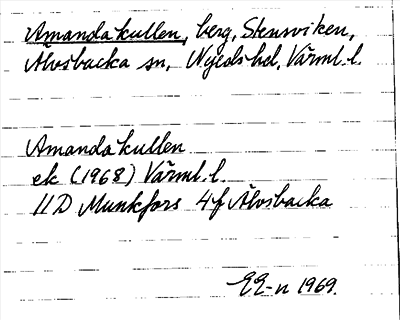 Amandakullen, berg, Stensviken,
Älvsbacka sn, Nyeds hd, Värml. l.
Amandakullen
ek (1968) Värml. l.
11D Munkfors 4f Älvsbacka
EE-n 1969.